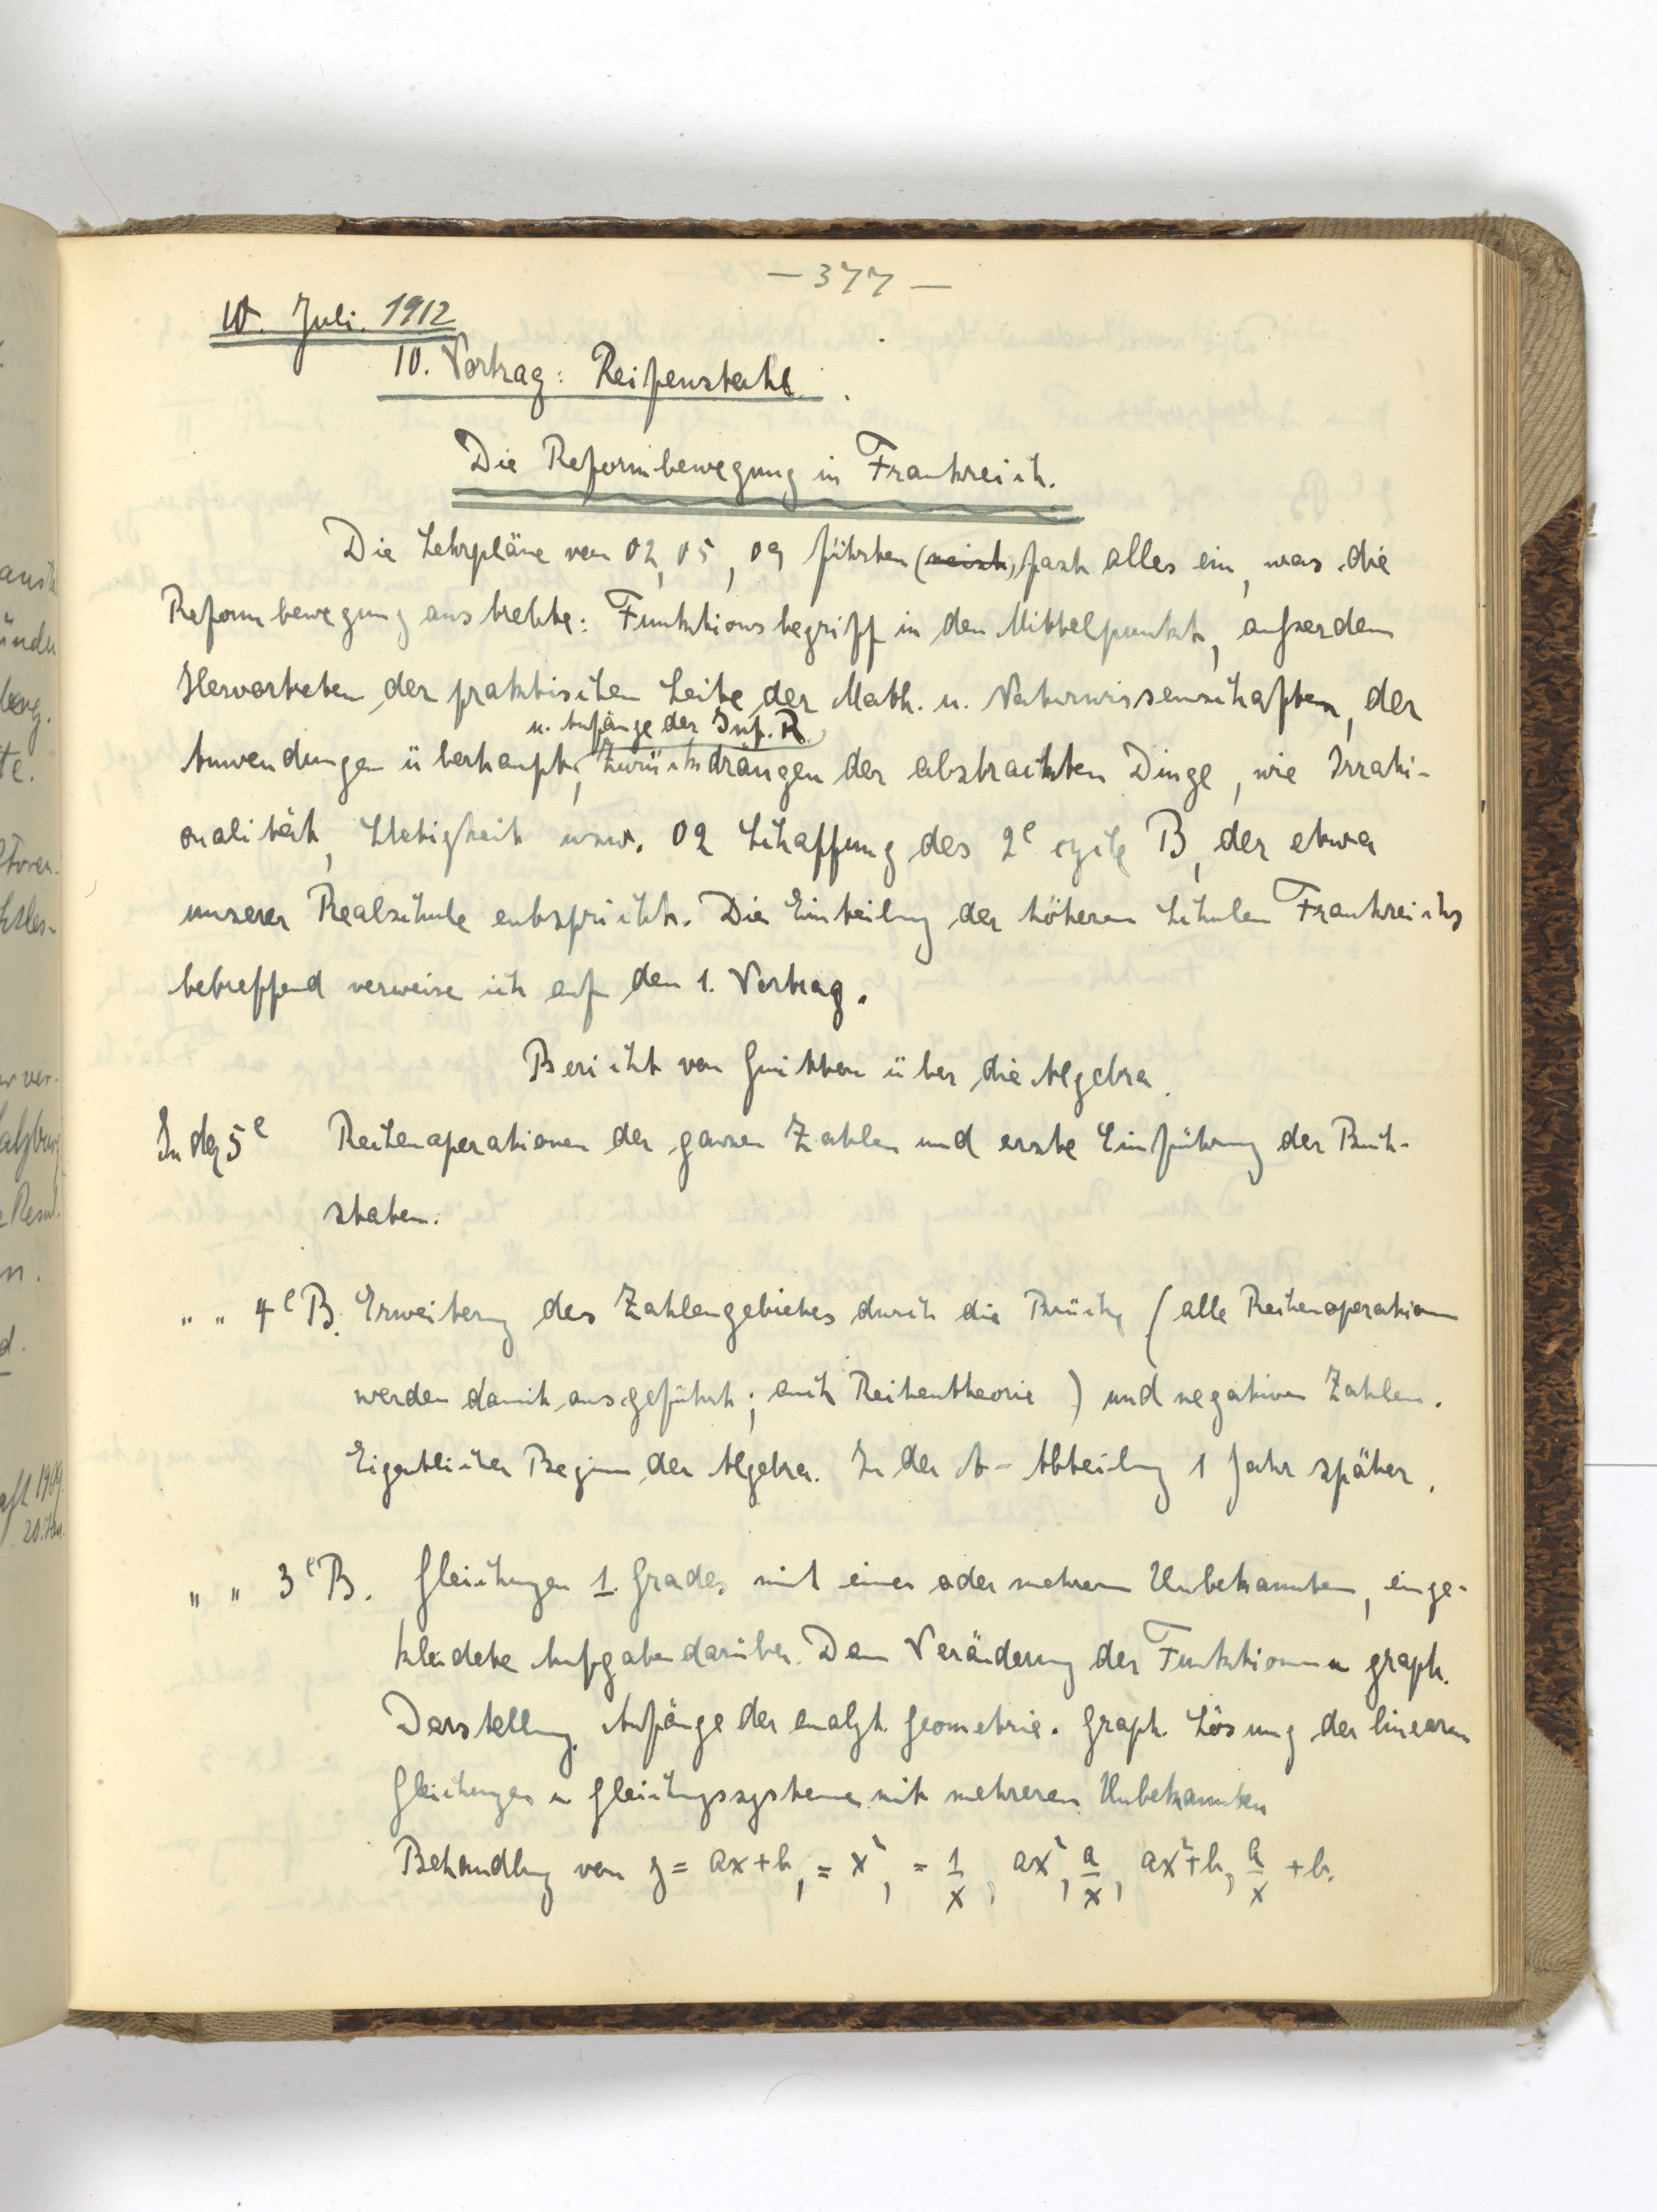 — 377 —
10. Juli. 1912
10. Vortrag: Reifenstahl.
Die Reformbewegung in Frankreich.
Die Lehrpläne von 02, 05, 09 führten (meist) fast alles ein, was die
Reformbewegung anstrebte: Funktionsbegriff in den Mittelpunkt, außerdem
Hervortreten der praktischen Seite der Math. u. Naturwissenschaften, der
u. Anfänge der Inf. R.
Anwendungen überhaupt, Zurückdrängen der abstrackten Dinge, wie Irrati-
onalität, Stetigkeit usw. 02 Schaffung des 2e cycle B, der etwa
unserer Realschule entspricht. Die Einteilung der höheren Schulen Frankreichs
betreffend verweise ich auf den 1. Vortrag.
Bericht von Guitton über die Algebra.
In der 5e Rechenoperationen der ganzen Zahlen und erste Einführung der Buch-
staben.
" " 4e B. Erweiterung des Zahlengebietes durch die Brüche (alle Rechenoperationen
werden damit ausgeführt; auch Reihentheorie) und negativen Zahlen.
Eigentlicher Beginn der Algebra. In der A-Abteilung 1 Jahr später.
" " 3e B. Gleichungen 1. Grades mit einer oder mehreren Unbekannten, einge-
kleidete Aufgaben darüber. Dann Veränderung der Funktionen u graph.
Darstellung. Anfänge der analyt. Geometrie. Graph. Lösung der linearen
Gleichungen u Gleichungssysteme mit mehreren Unbekannten
Behandlung von y = ax+b, = x², = 1/x, ax², a/x, ax²+b, a/x + b.